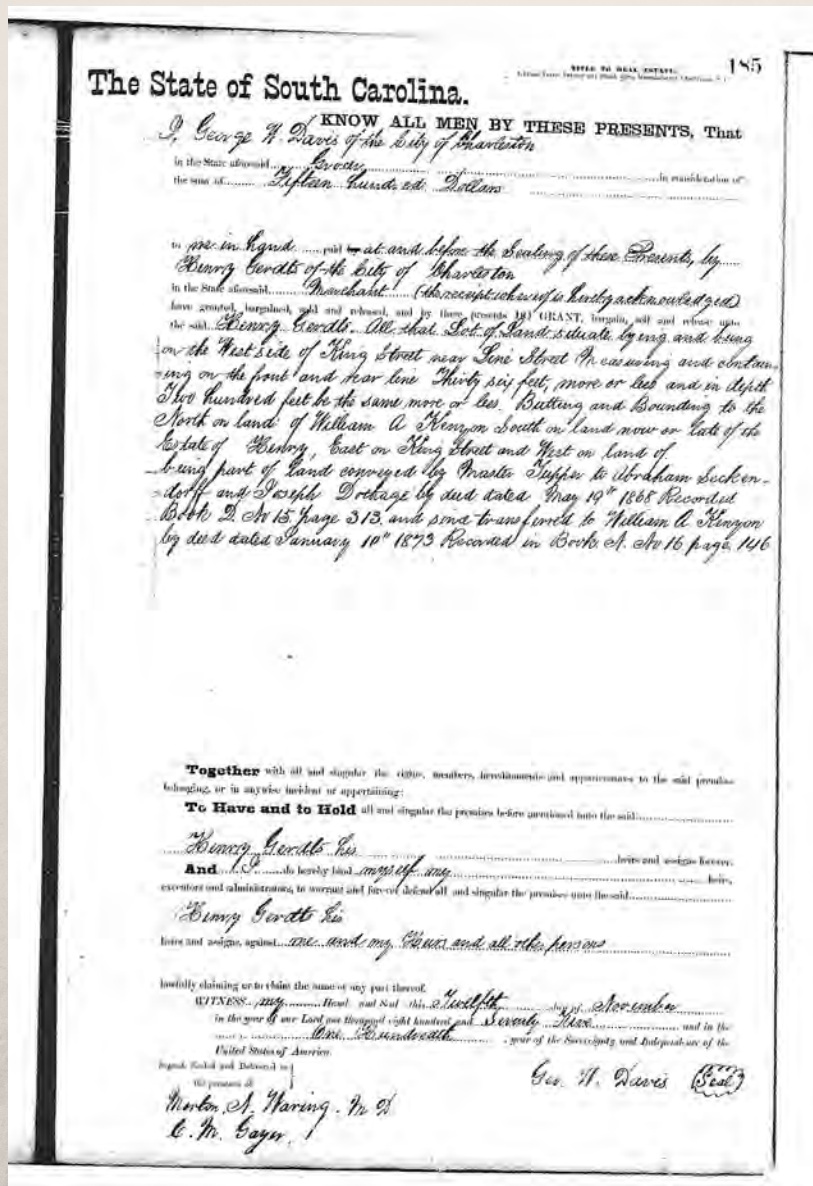 185
TITLE TO REAL ESTATE.
The State of South Carolina.
KNOW ALL MEN BY THESE PRESENTS, That
I, George W. Davis of the City of Charleston
in the State aforesaid in consideration of
the sum of Fifteen hundred Dollars
to me in hand paid at and before the Sealing of these Presents, by
Henry Gerdts of the City of Charleston
in the State aforesaid Merchant (the receipt whereof is hereby acknowledged)
have granted, bargained, sold and released, and by these presents DO GRANT, bargain, sell and release unto
the said Henry Gerdts. All that Lot of Land situate lying and being
on the West side of King Street near Line Street Measuring and contain-
-ing on the front and rear line Thirty six feet, more or less and in depth
Two hundred feet be the same more or less. Butting and Bounding to the
North on land of William A Kenyon South on land now or late of the
Estate of Henry, East on King Street and West on land of
being part of land conveyed by Master Tupper to Abraham Secken-
-dorff and Joseph by deed dated May 19th 1868 Recorded
Book D. No 15 page 313. and transferred to William A Kenyon
by deed dated January 10th 1873 Recorded in Book A. No 16 page 146
Together with all and singular the rights, members, hereditaments and appurtenances to the said premises
belonging, or in anywise incident or appertaining:
To Have and to Hold all and singular the premises before mentioned unto the said
Henry Gerdts his heirs and assigns forever.
And I do hereby bind myself my heirs,
executors and administrators, to warrant and forever defend all and singular the premises unto the said
Henry Gerdts his
heirs and assigns, against me and my Heirs and all other persons
lawfully claiming or to claim the same or any part thereof.
WITNESS my Hand and Seal this Twelfth day of November
in the year of our Lord one thousand eight hundred and Seventy Five and in the
One Hundredth year of the Sovereignty and Independence of the
United States of America.
Signed, Sealed and Delivered in
the presence of
Geo. W. Davis (Seal)
Morton. A. Waring. M D
C. M. Gayer.